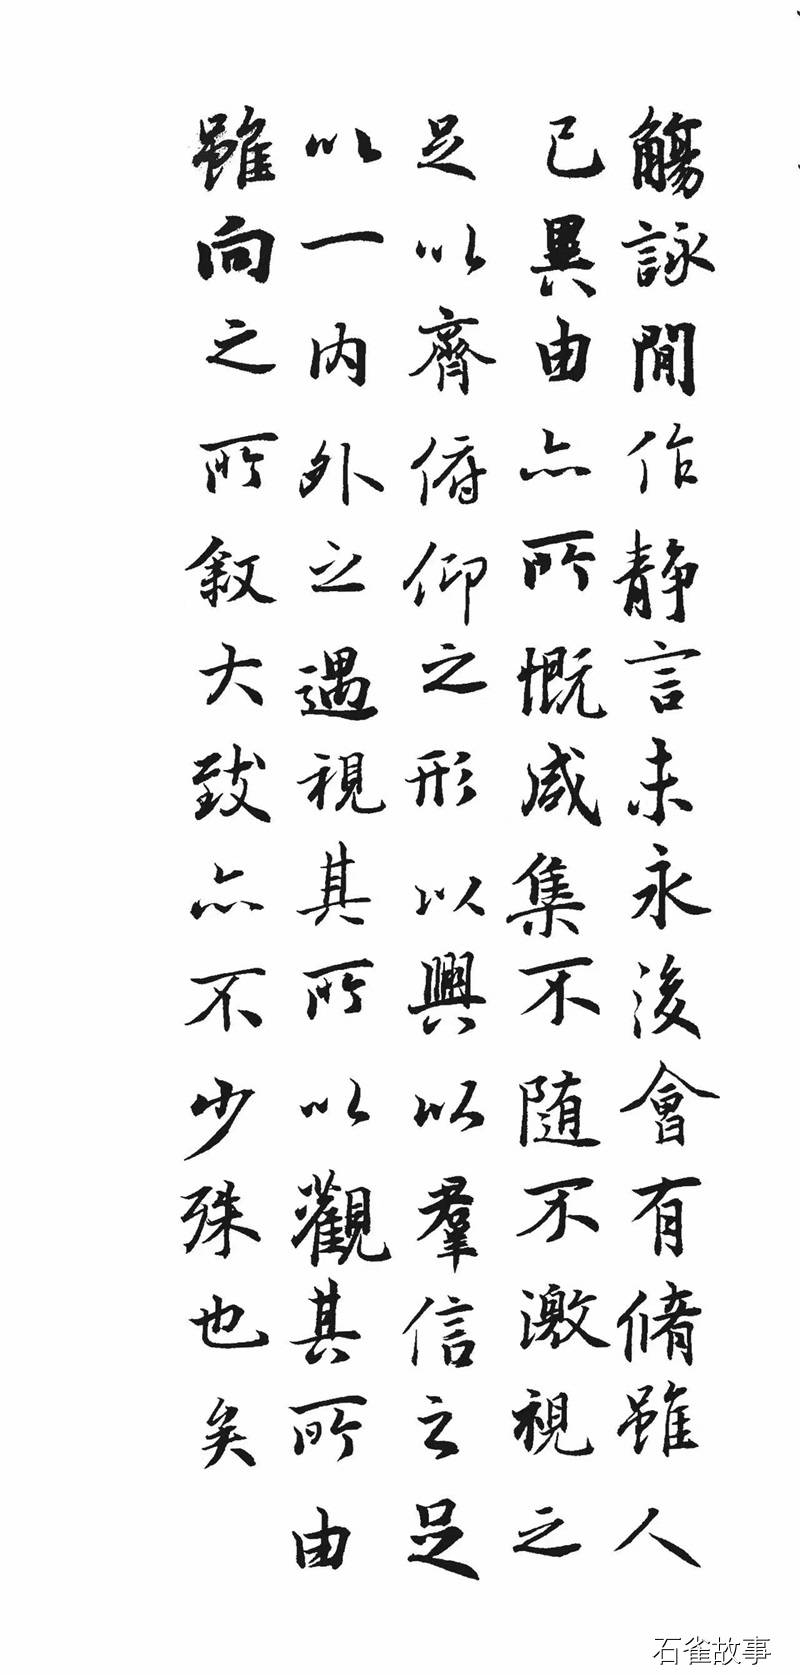 觴詠閒作静言未永後會有脩雖人
已異由亦所慨咸集不随不激視之
足以齊俯仰之形以興以羣信之足
以一内外之遇視其所以觀其所由
雖向之所叙大致亦不少殊也矣
石雀故事